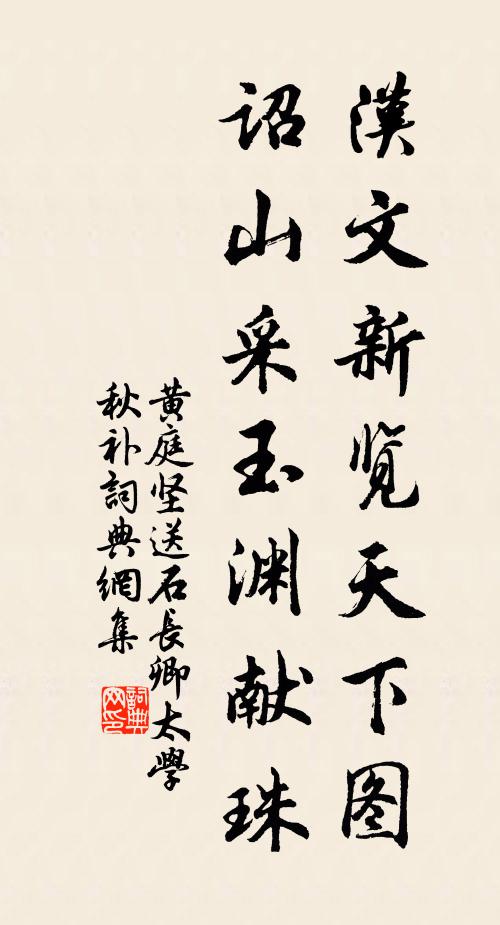 漢文新览天下图
诏山采玉渊献珠
黄庭坚送石長卿太學
秋补詞典網集
詞典
网印